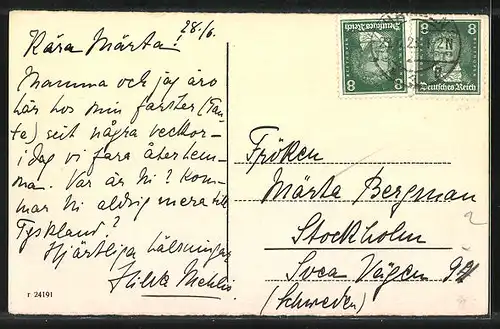 28/6.
Kära Märta!
Mamma och jag äro
här hos min farster (Tan-
te) seit några veckor-
idag vi fara återhem-
ma. Var är Ni? Kom-
mar Ni aldrig mera till
Tyskland?
Hjärtliga hälsningar
Hilde
r 24191
Deutsches Reich
8 8
8
Deutsches Reich
Fröken
Märta Bergman
Stockholm
Svea Vägen
(Schweden)